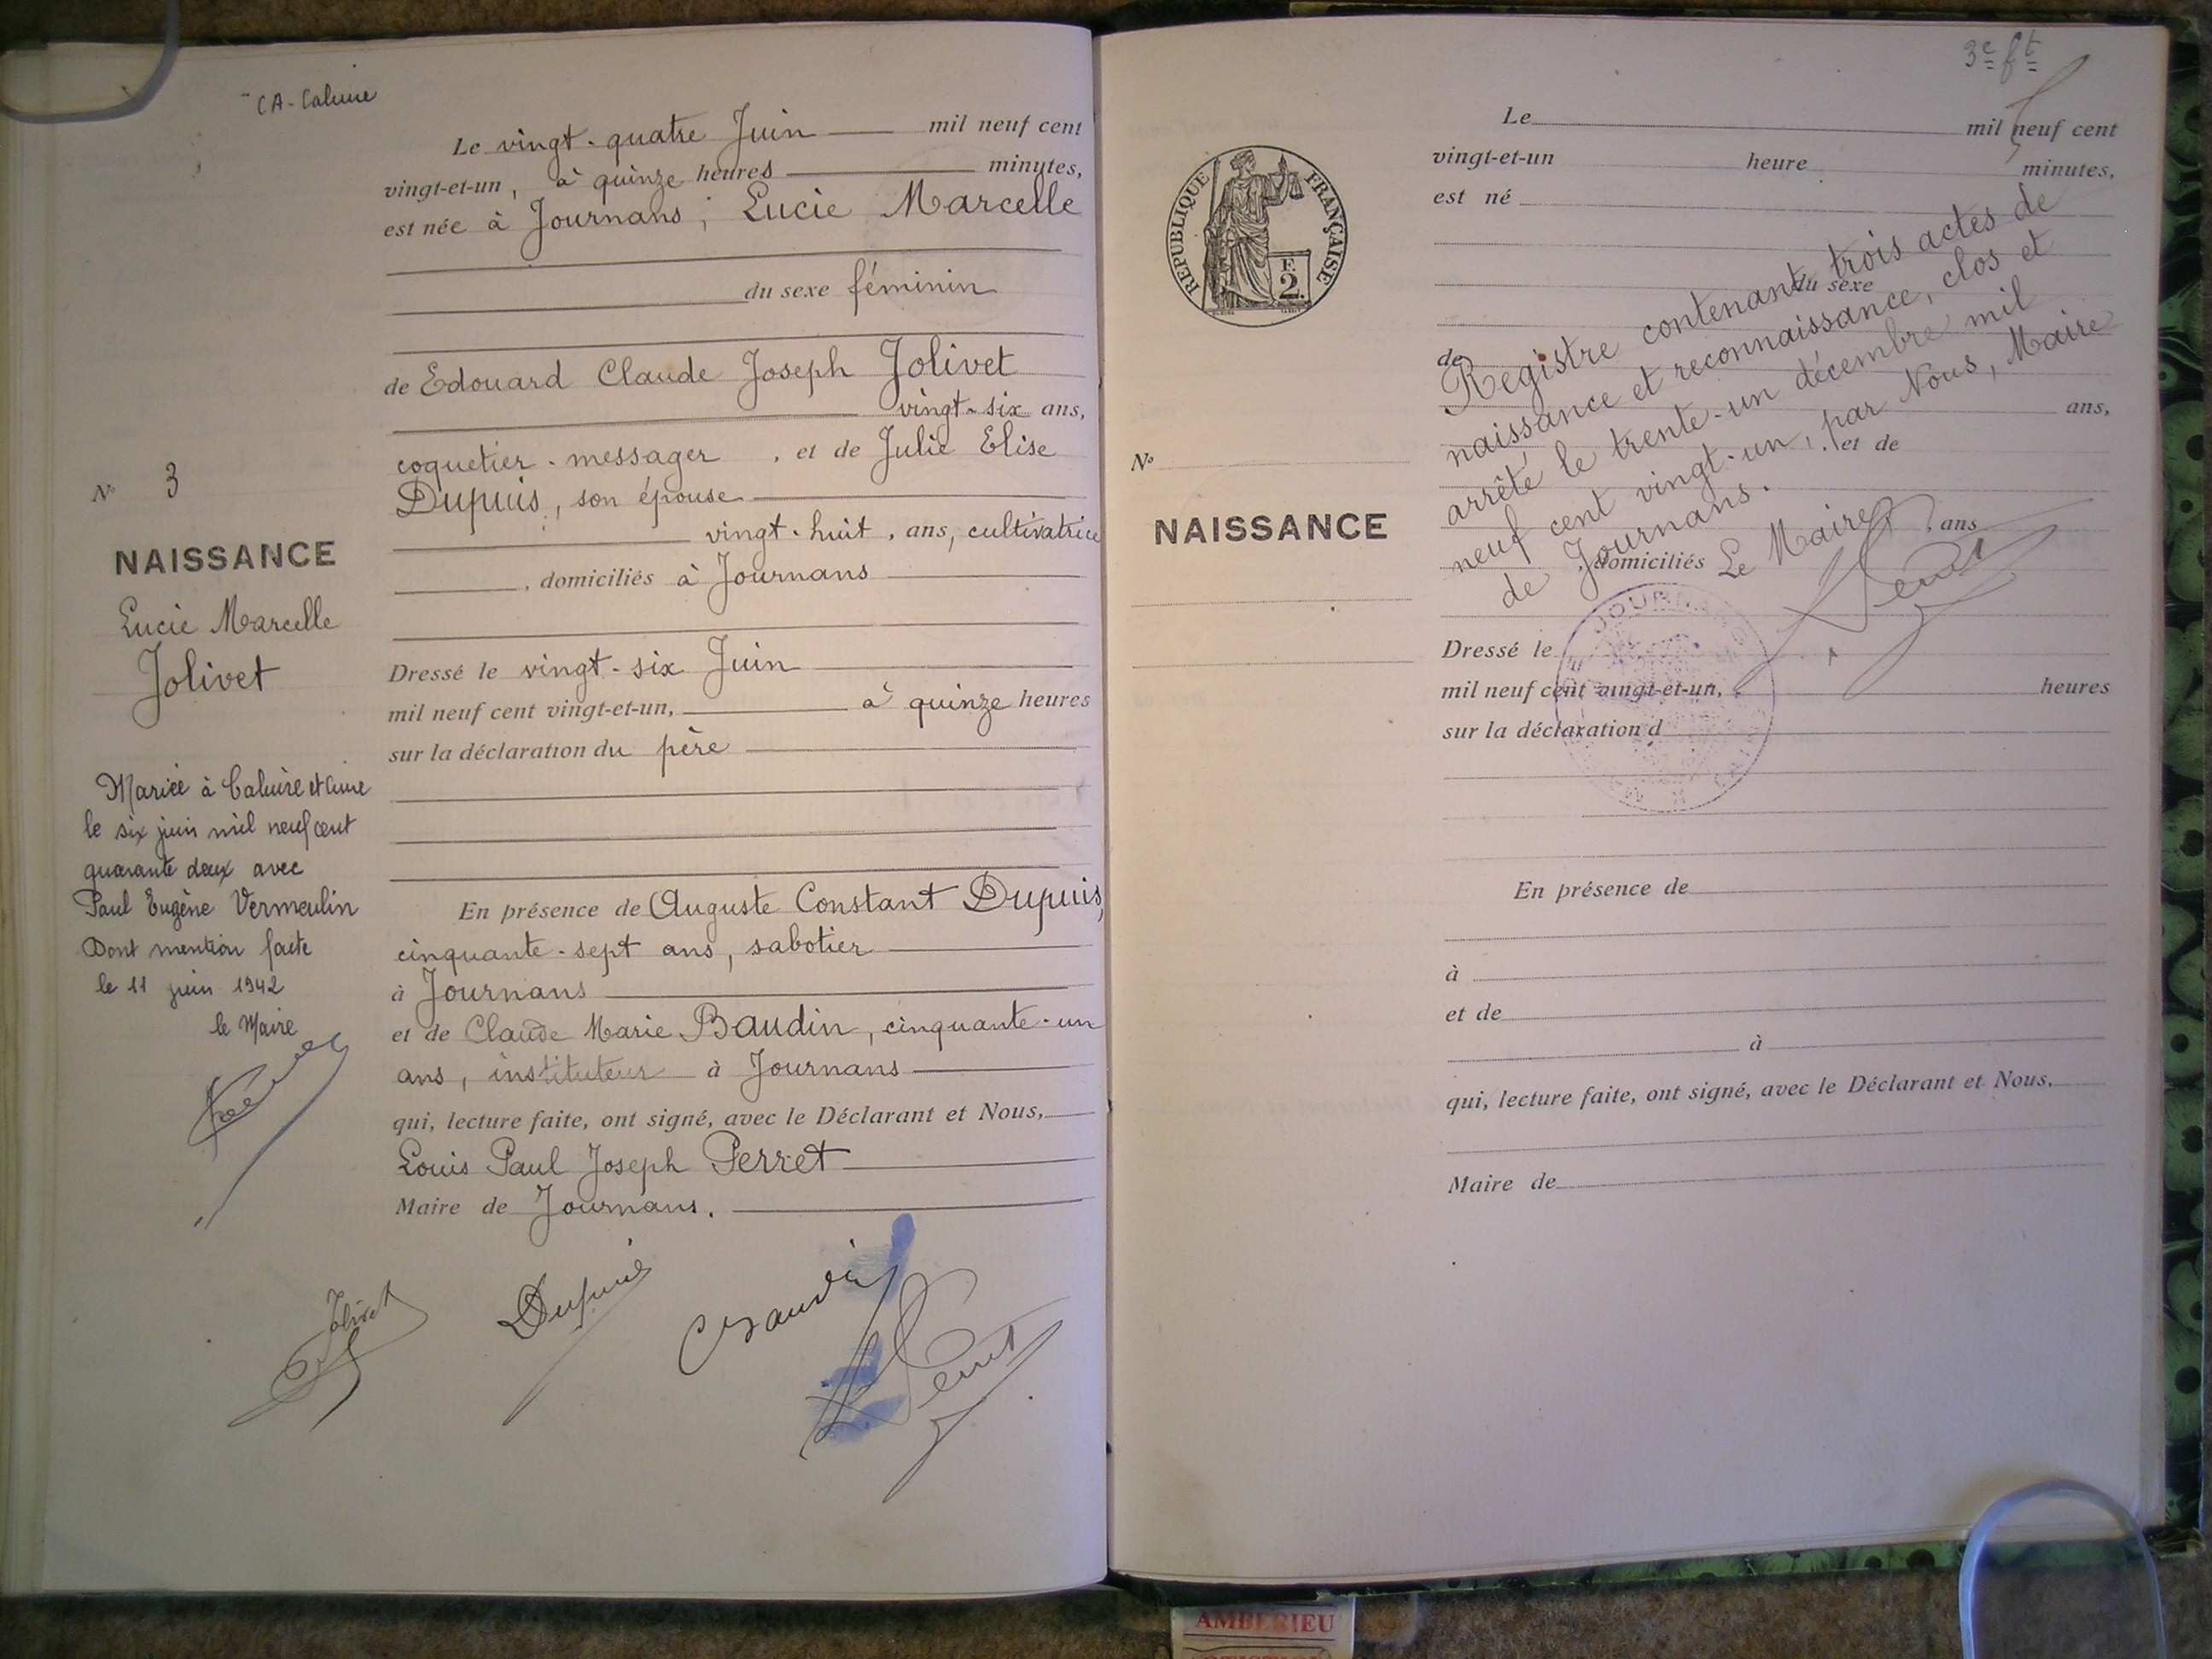 CA - Caluire
Le vingt-quatre Juin mil neuf cent
vingt-et-un, à quinze heures minutes,
est née à Journans ; Lucie Marcelle
du sexe féminin
de Edouard Claude Joseph Jolivet
vingt-six ans,
coquetier-messager, et de Julie Elise
Dupuis, son épouse
vingt-huit, ans, cultivatrice
, domiciliés à Journans
Dressé le vingt-six Juin
mil neuf cent vingt-et-un, à quinze heures
sur la déclaration du père
En présence de Auguste Constant Dupuis,
cinquante-sept ans, sabotier
à Journans
et de Claude Marie Baudin, cinquante-un
ans, instituteur à Journans
qui, lecture faite, ont signé, avec le Déclarant et Nous,
Louis Paul Joseph Perret
Maire de Journans.
Jolivet
Dupuis
Baudin
Perret
N° 3
NAISSANCE
Lucie Marcelle
Jolivet
Mariée à Caluire et Cuire
le six juin mil neuf cent
quarante deux avec
Paul Eugène Vermeulin
Dont mention faite
le 11 juin 1942
le Maire
3e ft
RÉPUBLIQUE FRANÇAISE
F.
2.
N°
NAISSANCE
Le mil neuf cent
vingt-et-un heure minutes,
est né
du sexe
de
ans,
, et de
, ans
, domiciliés
Dressé le
mil neuf cent vingt-et-un, heures
sur la déclaration d
En présence de
à
et de
à
qui, lecture faite, ont signé, avec le Déclarant et Nous,
Maire de
Registre contenant trois actes de
naissance et reconnaissance, clos et
arrêté le trente-un décembre mil
neuf cent vingt-un, par Nous, Maire
de Journans.
Le Maire
Perret
AMBERIEU